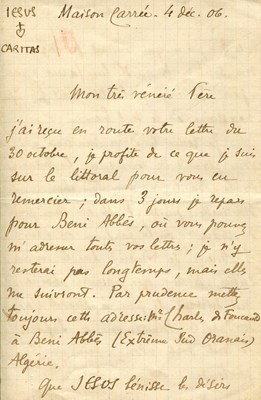 JESUS
CARITAS
Maison Carrée. 4 déc. 06.
Mon très vénéré Père
j'ai reçu en route votre lettre du
30 octobre, je profite de ce que je suis
sur le littoral pour vous en
remercier ; dans 3 jours je repars
pour Beni Abbès, où vous pouvez
m'adresser toutes vos lettres ; je n'y
resterai pas longtemps, mais elles
me suivront. Par prudence mettez
toujours cette adresse : Charles de Foucauld
à Beni Abbès (Extrême Sud Oranais)
Algérie.
Que JESUS bénisse les désirs